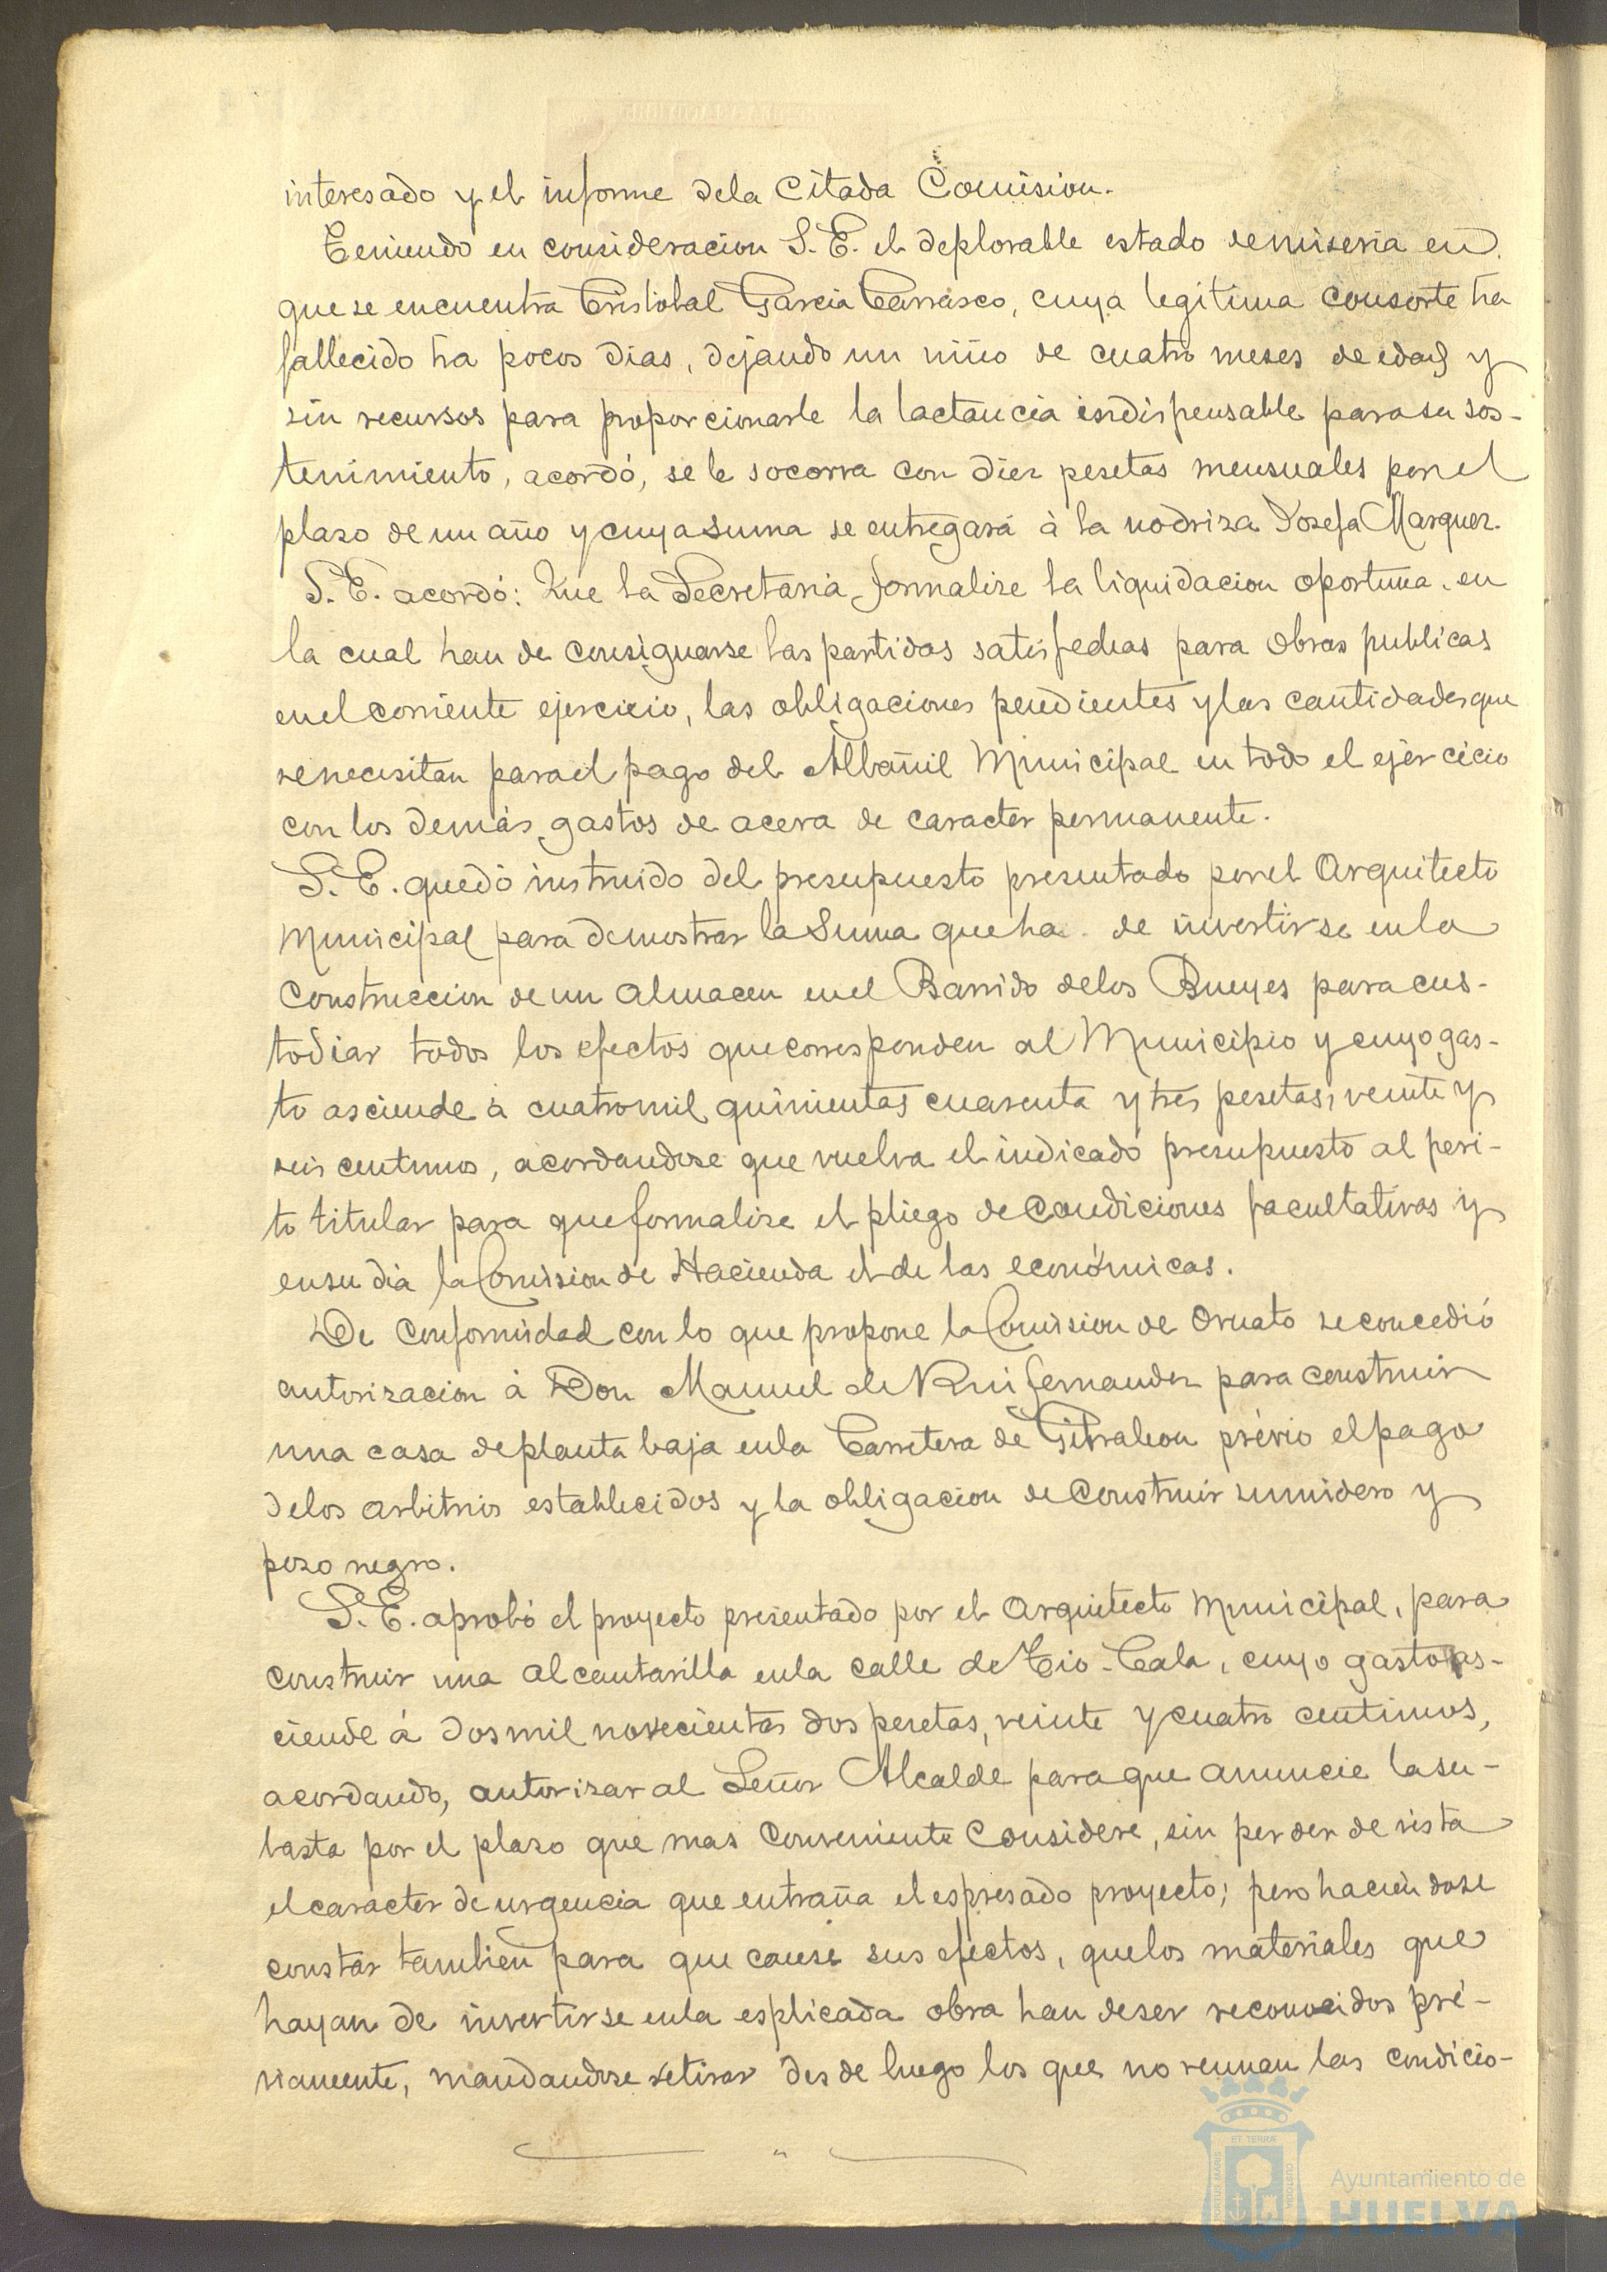 interesado y el informe dela Citada Comision.
Teniendo en consideracion S. E. el deplorable estado demiseria en
que se encuentra Cristobal Garcia Carrasco, cuya legitima consorte ha
fallecido ha pocos dias, dejando un niño de cuatro meses de edad y
sin recursos para proporcionarle la lactancia indispensable para su sos-
tenimiento, acordó, se le socorra con diez pesetas mensuales por el
plazo de un año y cuya suma se entregará à la nodriza Josefa Marquez.
S. E. acordó: Que la Secretaria formalize la liquidacion oportuna en
la cual han de consignarse las partidas satisfechas para obras publicas
en el corriente ejercicio, las obligaciones pendientes y las cantidades que
se necesitan para el pago del Albañil Municipal en todo el ejercicio
con los demás gastos de acera de caracter permanente.
S. E. quedó instruido del presupuesto presentado por el Arquitecto
Municipal para demostrar la Suma que ha de invertirse en la
Construccion de un almacen en el Barrido delos Bueyes para cus-
todiar todos los efectos que corresponden al Municipio y cuyo gas-
to asciende à cuatro mil quinientas cuarenta y tres pesetas, veinte y
seis centimos, acordandose que vuelva el indicado presupuesto al peri-
to titular para que formalize el pliego de Condiciones facultativas y
en su dia la Comision de Hacienda el de las económicas.
De conformidad con lo que propone la Comision de Ornato se concedió
autorizacion à Don Manuel de Rui fernandez para construir
una casa de planta baja en la Carretera de Gibraleon prévio el pago
delos arbitrios establecidos y la obligacion de Construir sumidero y
pozo negro.
S. E. aprobó el proyecto presentado por el Arquitecto Municipal, para
construir una alcantarilla en la calle de Tio-Cala, cuyo gasto as-
ciende á dos mil novecientas dos pesetas, veinte y cuatro centimos,
acordando, autorizar al Señor Alcalde para que anuncie la su-
basta por el plazo que mas Conveniente Considere, sin perder de vista
el caracter de urgencia que entraña el espresado proyecto; pero haciendose
constar tambien para que cause sus efectos, que los materiales que
hayan de invertirse en la esplicada obra han de ser reconocidos pré-
viamente, mandandose retirar desde luego los que no reunan las condicio-
ET TERRÆ
CUSTODIA
Ayuntamiento de
HUELVA